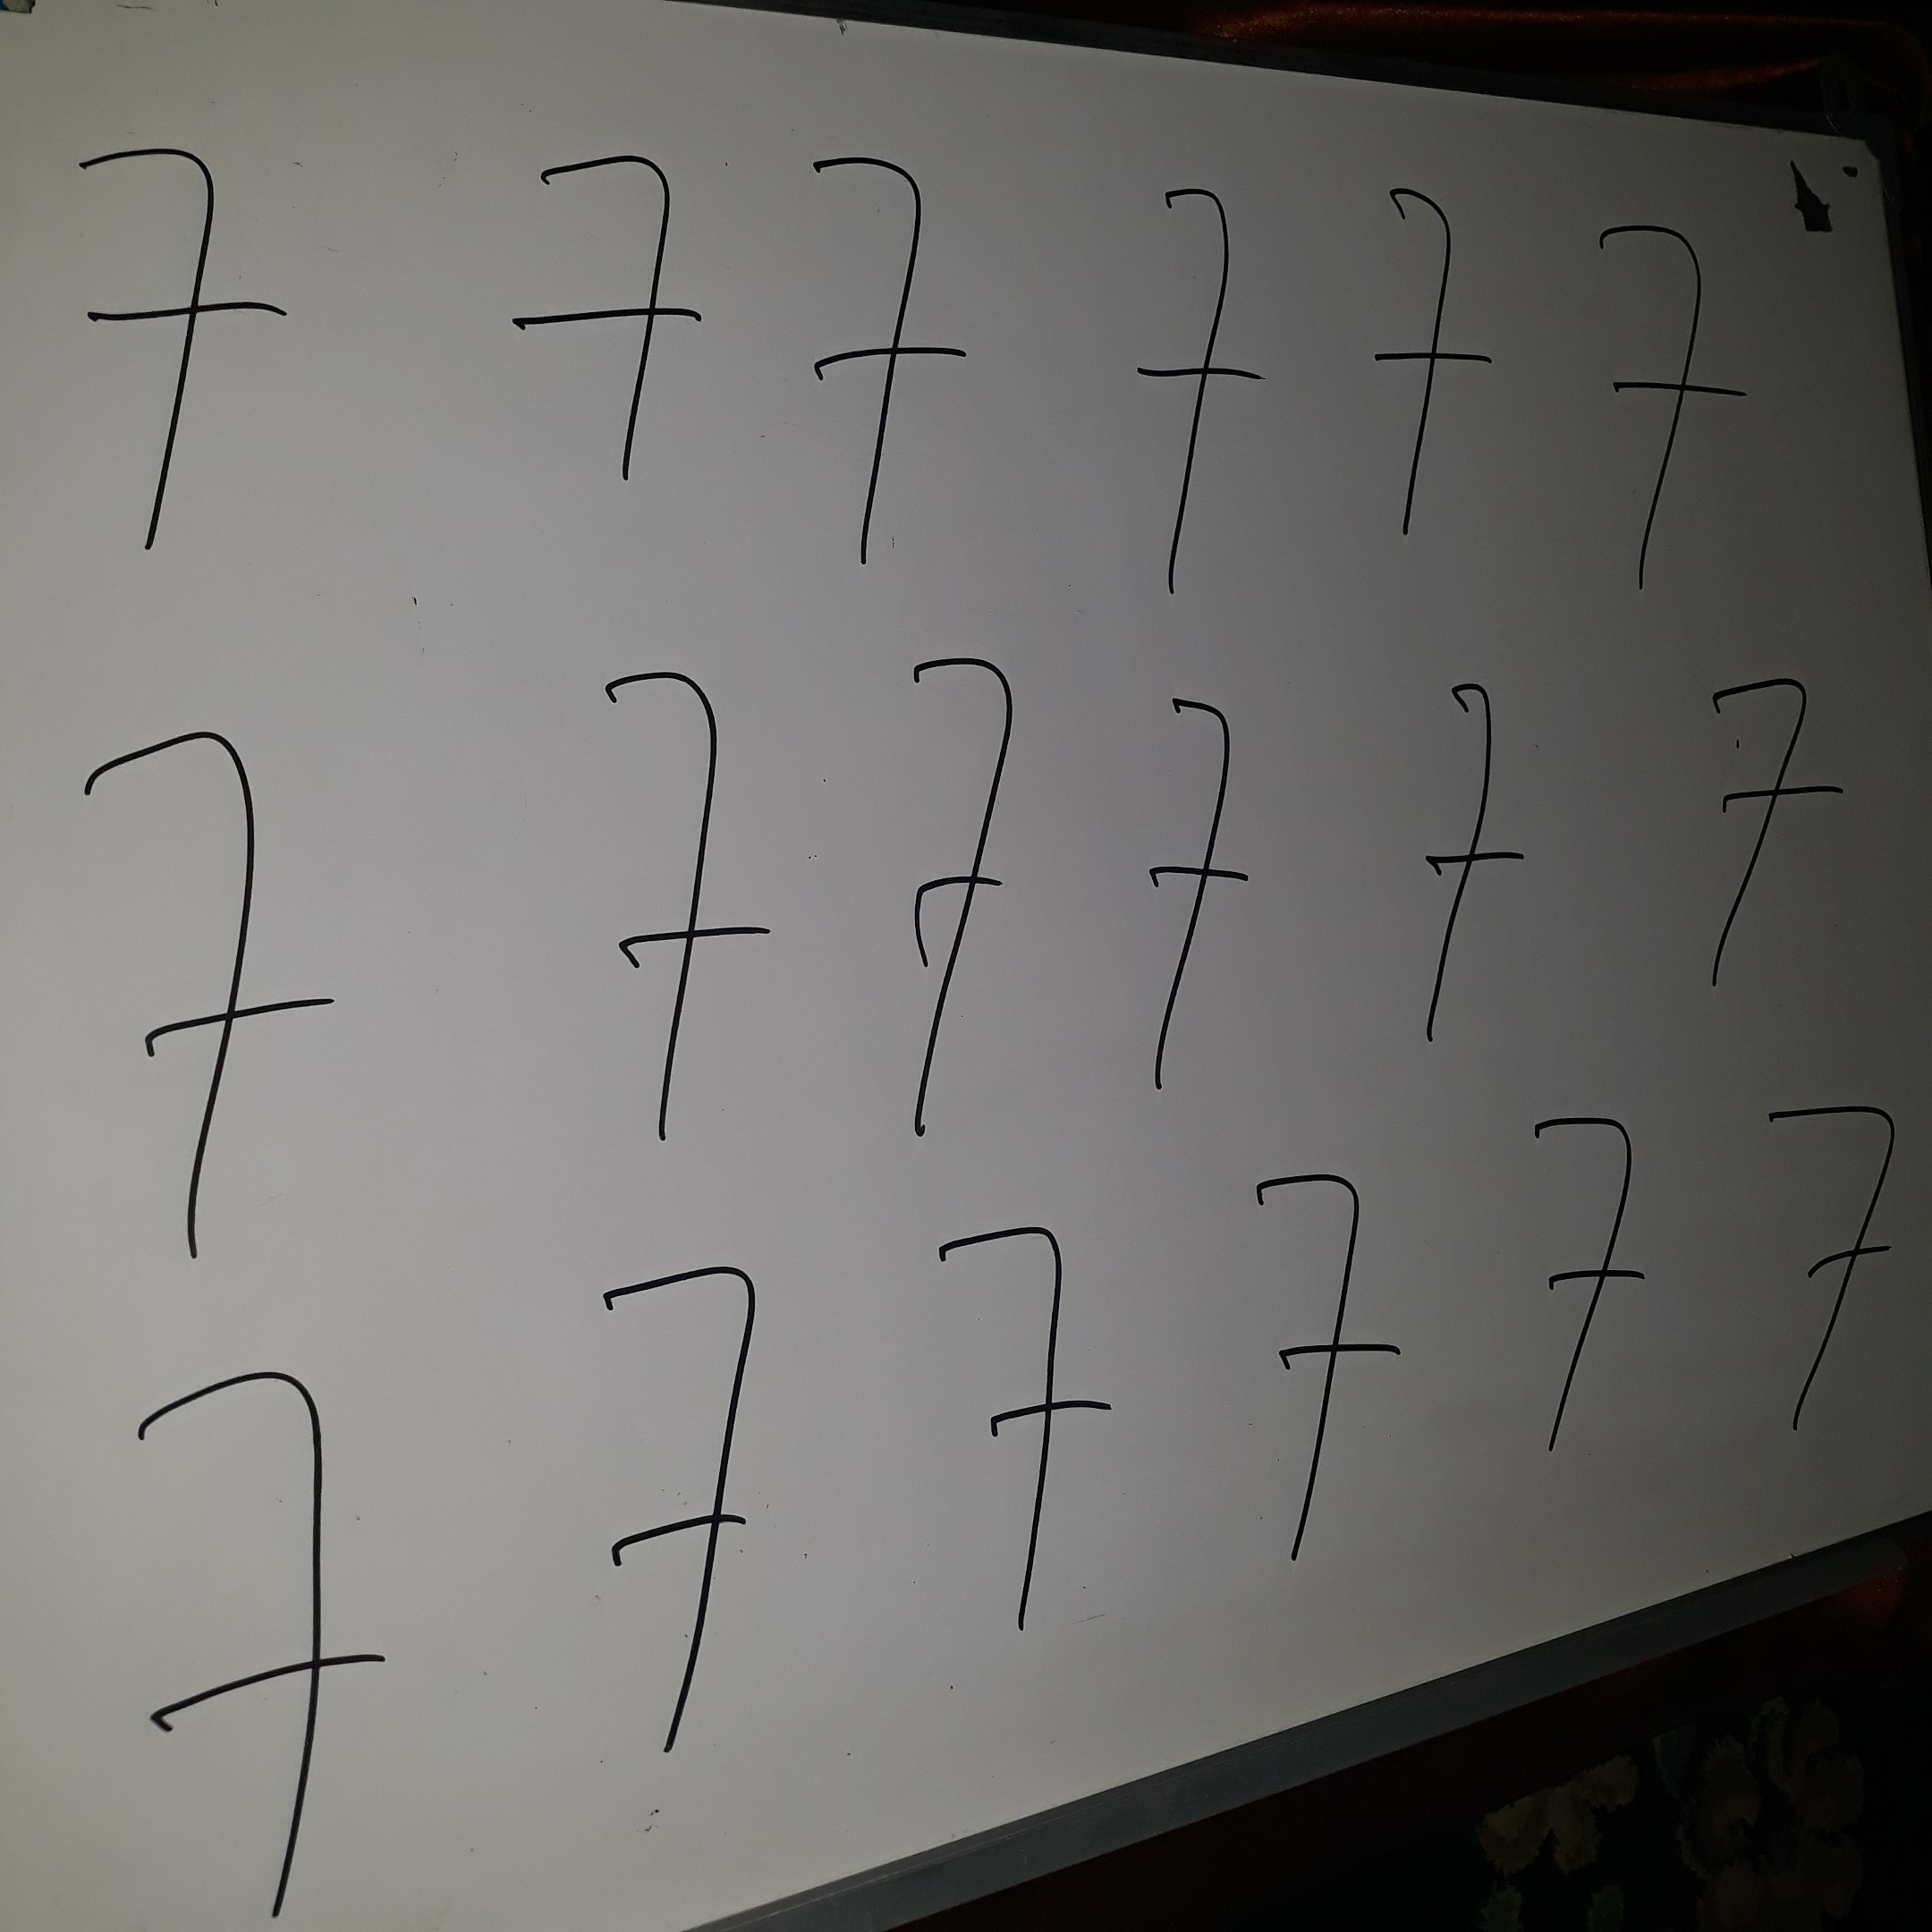 7 7 7 7 7 7
7 7 7 7 7 7
7 7 7 7 7 7